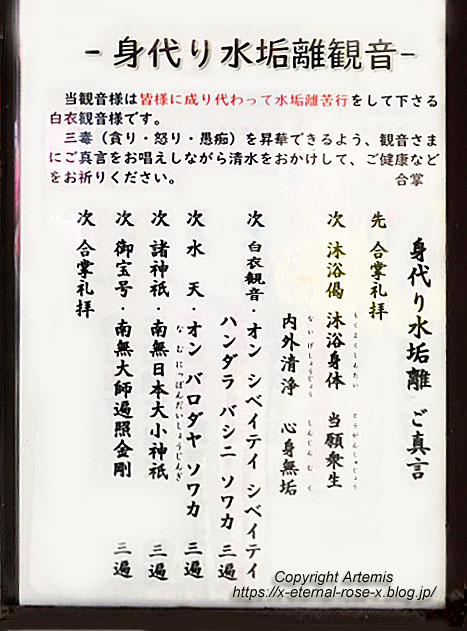 - 身代り水垢離観音-
当観音様は皆様に成り代わって水垢離苦行をして下さる
白衣観音様です。
三毒（貪り・怒り・愚痴）を昇華できるよう、観音さま
にご真言をお唱えしながら清水をおかけして、ご健康など
をお祈りください。 合掌
身代り水垢離 ご真言
先 合掌礼拝
次 沐浴偈 沐浴身体 当願衆生
もくよくしんたい とうがんしゅじょう
内外清浄 心身無垢
ないげしょうじょう しんじんむく
次 白衣観音・オン シベイテイ シベイテイ
ハンダラ バシニ ソワカ 三遍
次 水 天・オン バロダヤ ソワカ 三遍
次 諸神祇・南無日本大小神祇 三遍
なむにっぽんだいしょうじんぎ
次 御宝号・南無大師遍照金剛 三遍
次 合掌礼拝
Copyright Artemis
https://x-eternal-rose-x.blog.jp/